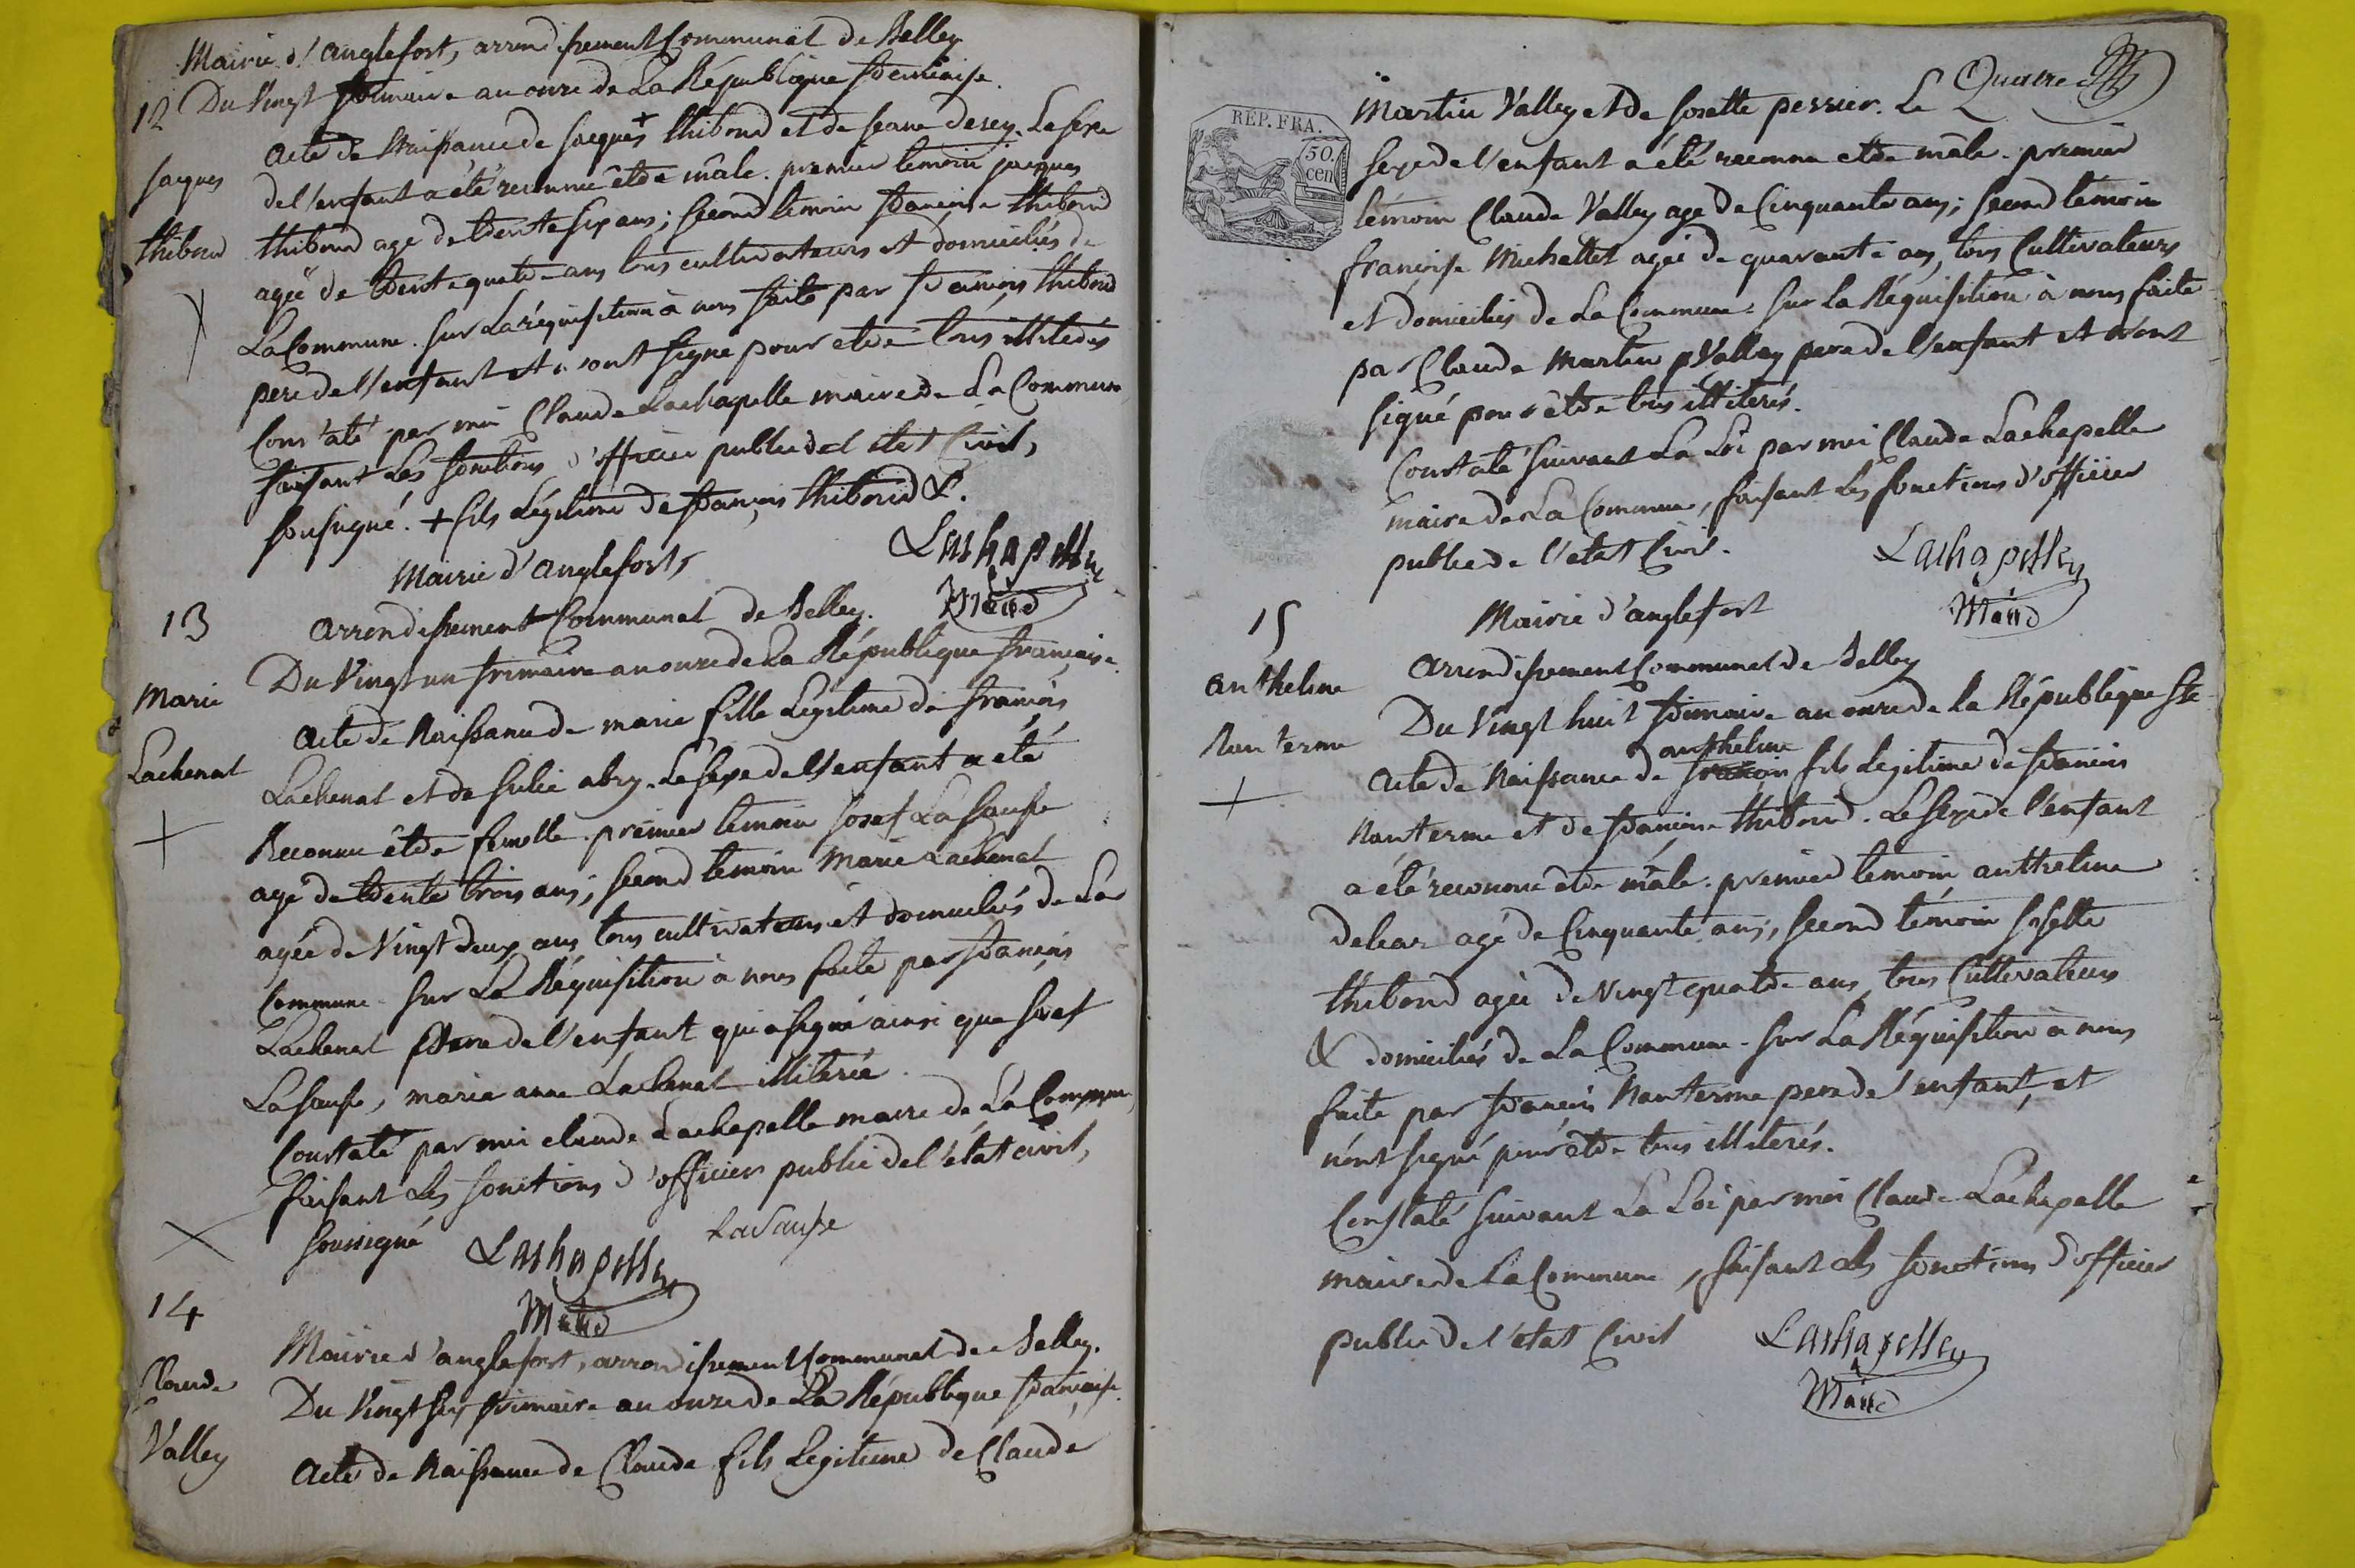 Mairie d'anglefort, arrondissement Communal de Belley
12 Du Vingt frimaire an onze de La République françaisse.
acte de Naissance de jacques + thiboud et de jeane derey. Le sexe
Jaques
de l'enfant a été reconnu être mâle. premier temoin jacques
thiboud
thiboud age de trente six ans; second temoin francoise thiboud
agée de trente quatre ans tous cultivateurs et domiciliés de
La Commune. sur La réquisition à nous faite par françois thiboud
pere de l'enfant et n'ont signe pour etre tous illiterés
Constaté par moi Claude Lachapelle maire de La Commune
faisant Les fonctions d'officier public de l'etat Civil,
soussigné. + fils Légitime de françois thiboud &.
Lachapelle
Maire
Mairie d'anglefort,
13
arrondissement Communal de Belley.
Du Vingt un frimaire an onze de La République française.
Marie
acte de Naissance de marie fille Légitime de françois
Lachenal
Lachenal et de Julie abry. Le sexe de l'enfant a été
Reconnu être femelle. premier temoin Josef La sausse
agé de trente trois ans; second temoin Marie Lachenal
agée de Vingt deux ans tous cultivateurs et domiciliés de La
Commune. sur La Réquisition à nous faite par françois
Lachenal pere de l'enfant qui a signé ainsi que Josef
La sausse, marie anne Lachenal illiterée.
Constaté par moi claude Lachapelle maire de La Commune
faisant Les fonctions d'officier public de l'état civil,
soussigné
Lachapelle
Lasausse
Maire
14
Mairie d'anglefort, arrondissement Communal de Belley.
Claude
Du Vingt six frimaire an onze de La République française.
Valley
Acte de Naissance de Claude fils Legitime de Claude
Quatre
REP. FRA.
50.
cen
Martin Valley et de Josette perrier. Le
sexe de l'enfant a été reconnu etre mâle. premier
témoin Claude Valley age de Cinquante ans; second témoin
françoise Michallet agée de quarante ans, tous Cultivateurs
et domiciliés de La Commune. sur la Réquisition à nous faite
par Claude Martin Valley pere de l'enfant et n'ont
signé pour être tous illiterés.
Constaté suivant La Loi par moi Claude Lachapelle
maire de La Commune, faisant Les fonctions d'officier
public de l'état Civil.
Lachapelle
Maire
15
Mairie d'anglefort
arrondissement Communal de Belley
anthelme
Du Vingt huit frimaire an onze de la République fse
Nanterme
anthelme
acte de Naissance de françois fils légitime de françois
Nanterme et de françoise thiboud. Le sexe de l'enfant
a été reconnu être mâle. premier temoin anthelme
deleaz agé de Cinquante ans, second témoin Josette
thiboud agée de Vingt quatre ans, tous Cultivateurs
& domiciliés de La Commune. sur La Réquisition à nous
faite par françois Nanterme pere de l'enfant, et
n'ont signé pour être tous illiterés.
Constaté suivant La Loi par moi Claude Lachapelle
maire de La Commune, faisant Les fonctions d'officier
public de l'état Civil
Lachapelle
Maire